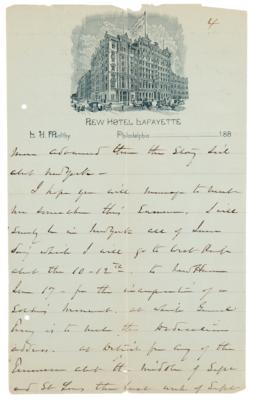 4
New Hotel Lafayette
L. H. Maltby Philadelphia 188
more advanced than the Story
about New York –
I hope you will manage to meet
me somewhere this Summer, I will
surely be in New York all of June
I will go to West Point
about the 10–12th, to New Haven
June 17 – for the inauguration of a
Soldiers Monument, at
is to make the dedication
address. at Detroit for any of the
about the middle of Sept
and St Louis the last week of Sept